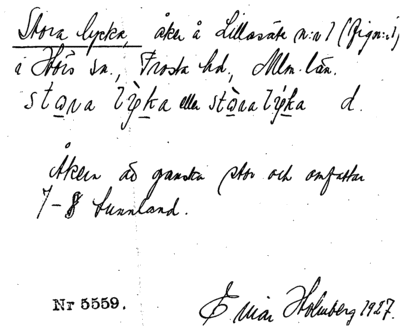 Stora lycka, åker å Lillasäte n:o 1 (Fign:1)
i Hörs sn., Frosta hd., Mlm. län.
stọra lyka eller stọra lyka d.
Åkern är ganska stor och omfattar
7-8 tunnland.
Nr 5559. Einar Holmberg 1927.